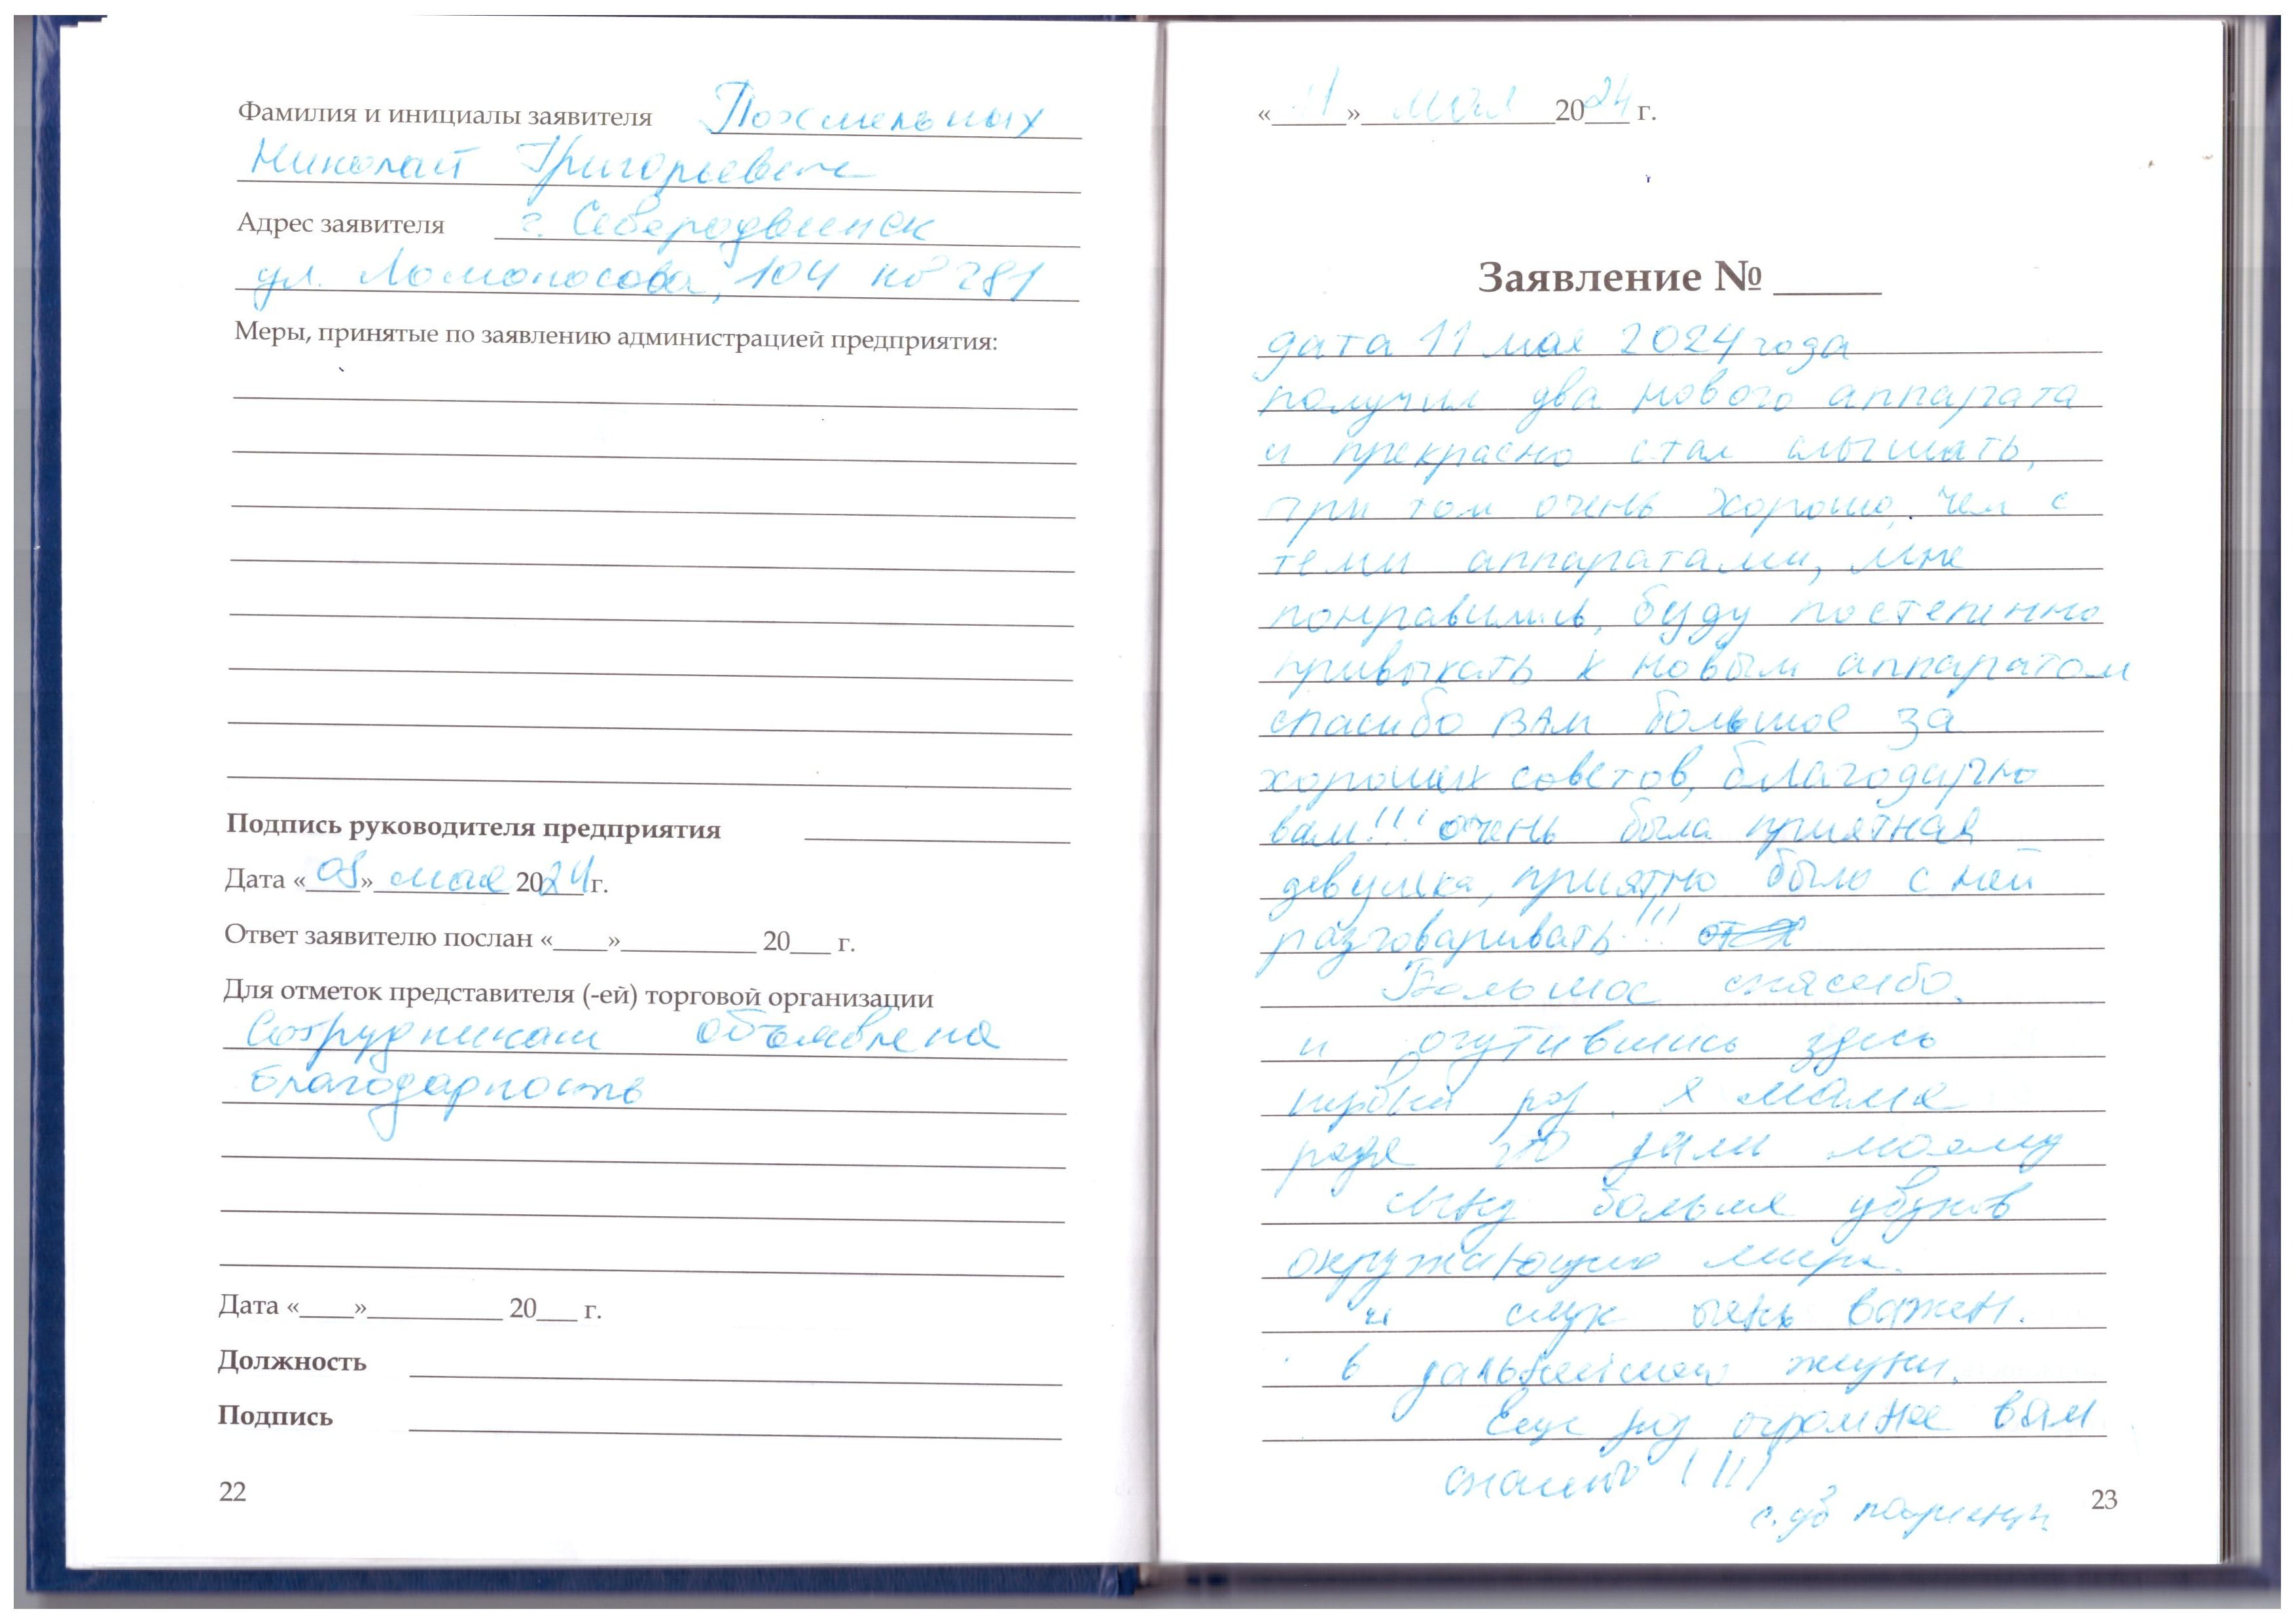 Фамилия и инициалы заявителя Похмельных
Николай Григорьевич
Адрес заявителя г. Северодвинск
ул. Ломоносова, 104 кв 281
Меры, принятые по заявлению администрацией предприятия:
Подпись руководителя предприятия
Дата «08» мая 2024 г.
Ответ заявителю послан «____»__________ 20___ г.
Для отметок представителя (-ей) торговой организации
Сотрудникам объявлена
благодарность
Дата «____»__________ 20___ г.
Должность
Подпись
22
«11» мая 2024 г.
Заявление № _____
дата 11 мая 2024 года
получил два нового аппарата
и прекрасно стал слышать,
при том очень хорошо, чем с
теми аппаратами, мне
понравились, буду постепенно
привыкать к новым аппаратом
спасибо вам большое за
хороших советов, благодарю
вам!!! очень была приятная
девушка, приятно было с ней
разговаривать!!!
Большое спасибо.
и очутившись здесь
первый раз. я мама
рада что дали моему
сыну больше звуков
окружающего мира.
и слух очень важен.
в дальнейшей жизни.
Еще раз огромное вам
спасибо !!!
с. ув пациенты
23